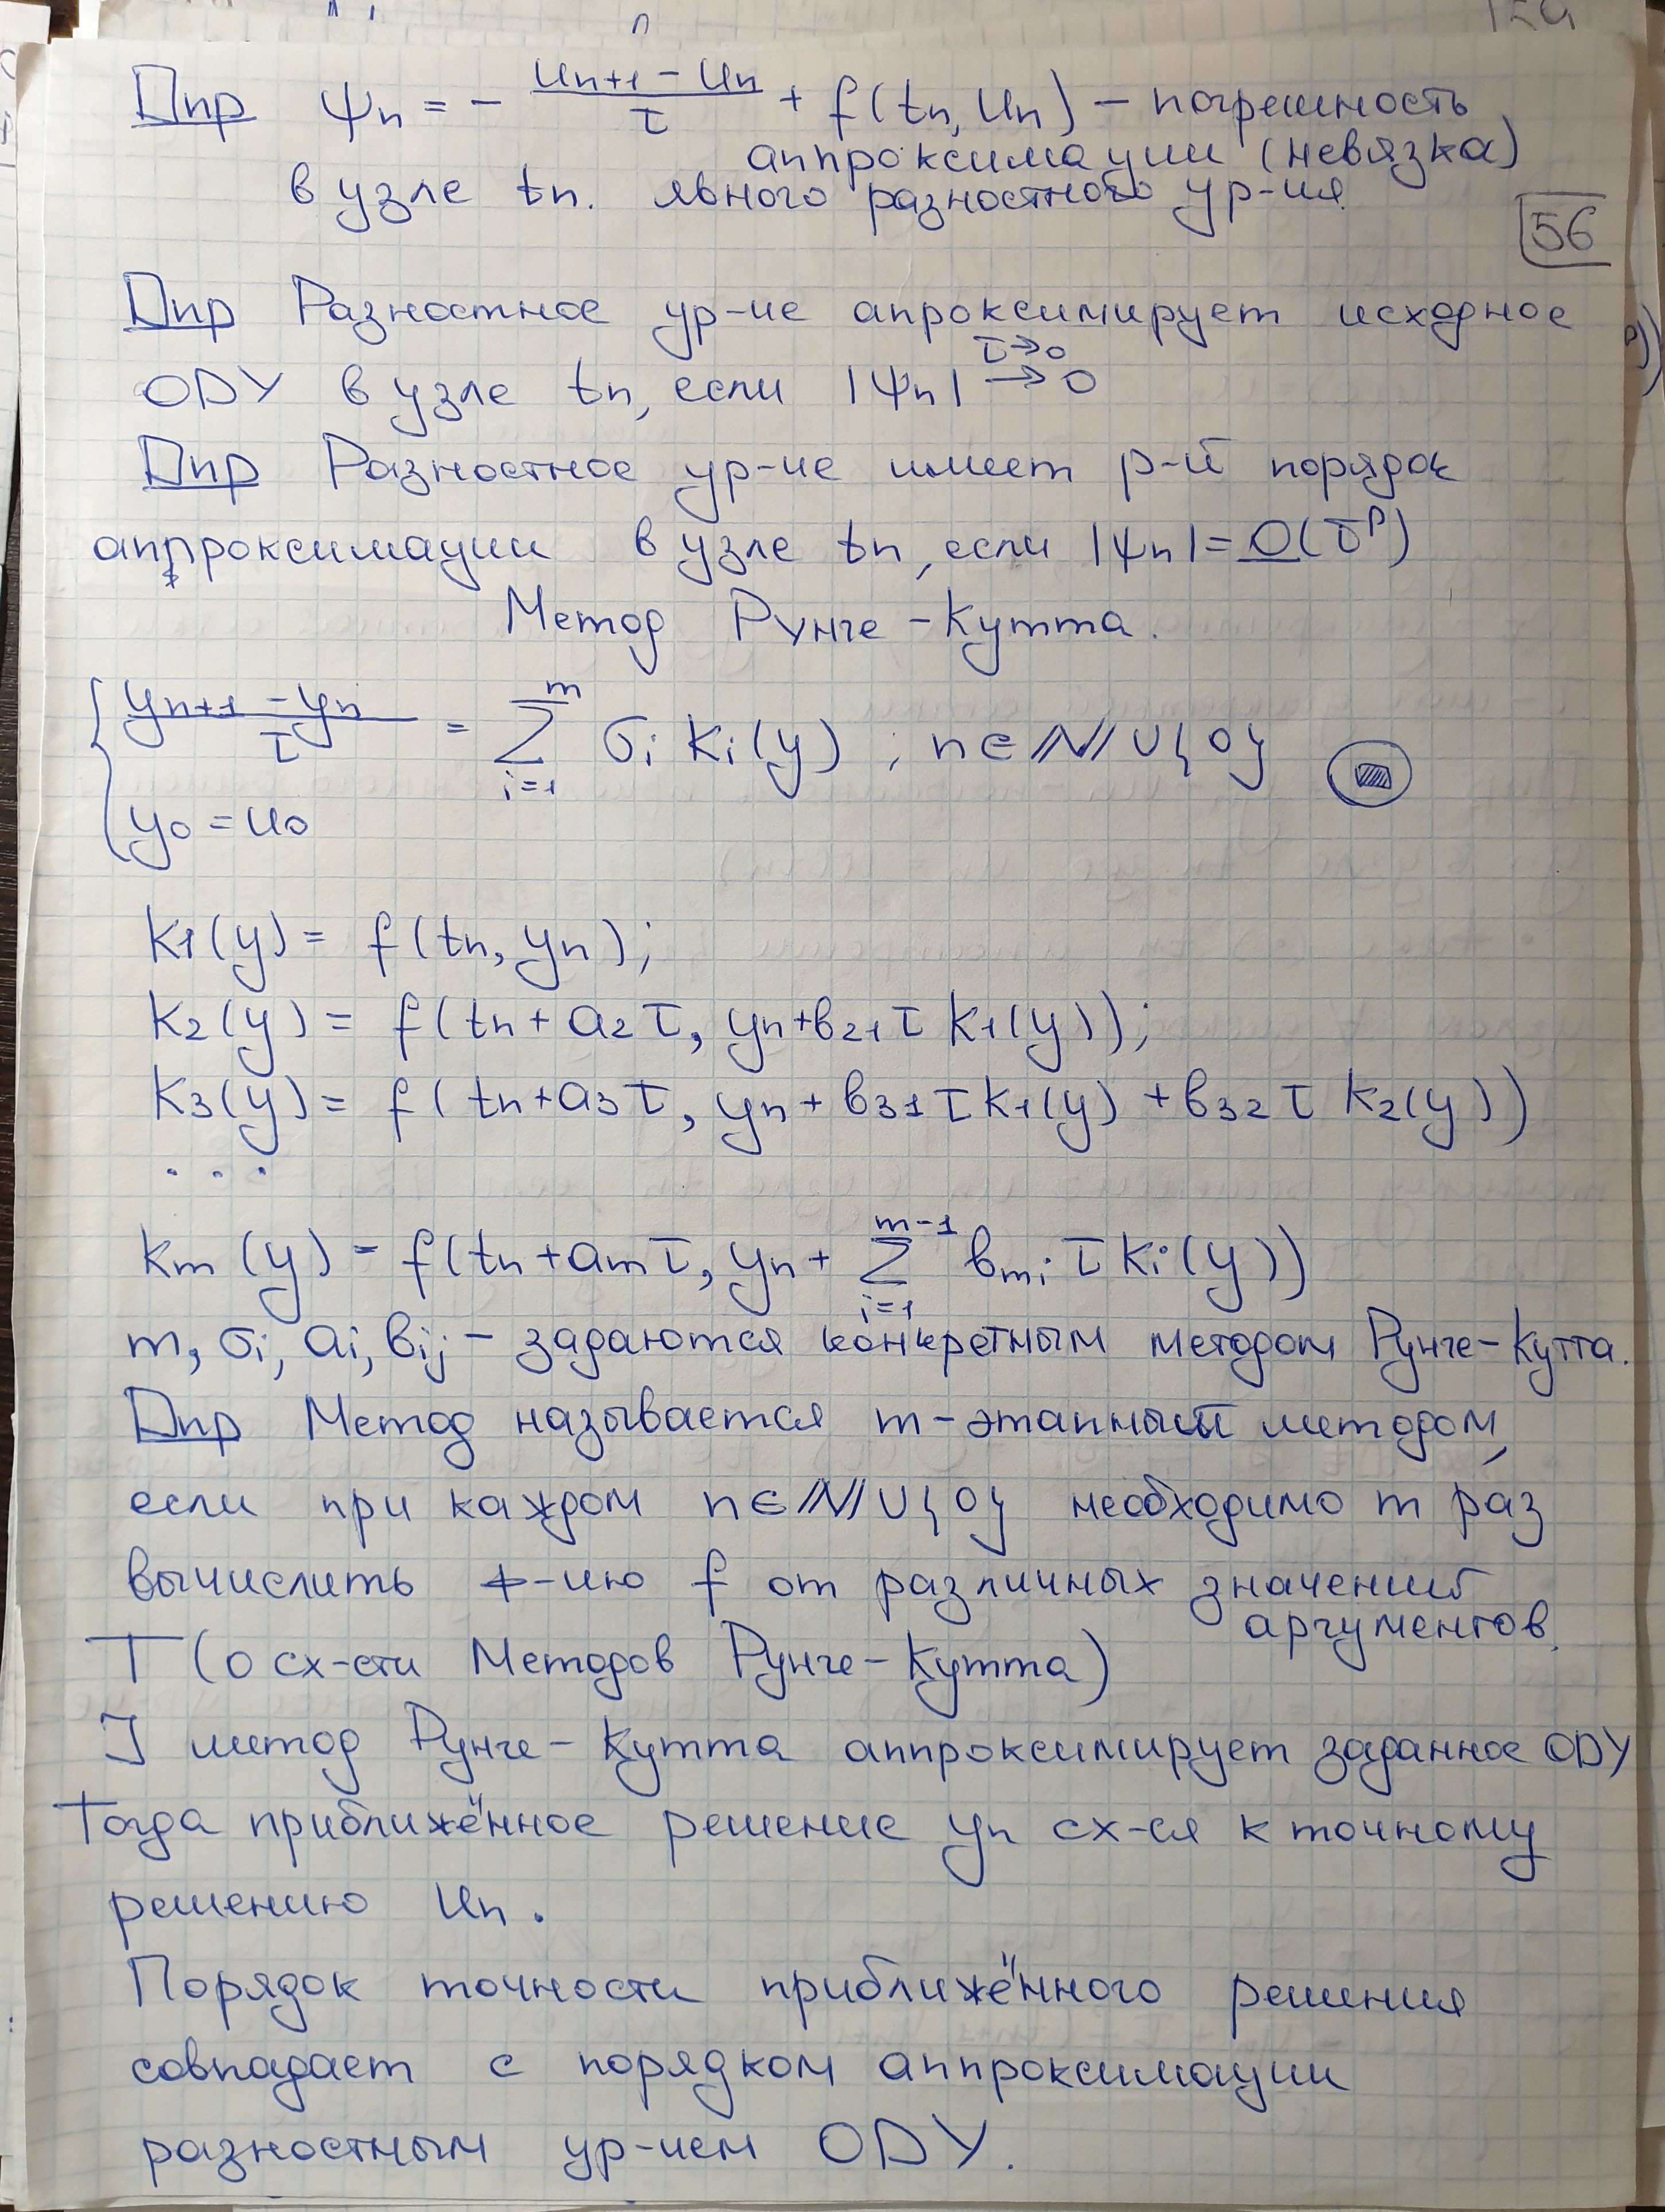 Опр ψn = - (un+1 - un)/τ + f(tn, un) - погрешность
аппроксимации (невязка)
в узле tn. явного разностного ур-ия.
56
Опр Разностное ур-ие апроксимирует исходное
ОДУ в узле tn, если |ψn| →(τ→0) 0
Опр Разностное ур-ие имеет p-й порядок
аппроксимации в узле tn, если |ψn| = O(τ^p)
Метод Рунге-Кутта.
{ (yn+1 - yn)/τ = Σ_{i=1}^{m} σi ki(y) ; n∈ℕ∪{0}
y0 = u0
k1(y) = f(tn, yn);
k2(y) = f(tn + a2τ, yn + в21τ k1(y));
k3(y) = f(tn + a3τ, yn + в31τ k1(y) + в32τ k2(y))
...
km(y) = f(tn + amτ, yn + Σ_{i=1}^{m-1} вmi τ ki(y))
m, σi, ai, вij - задаются конкретным методом Рунге-Кутта.
Опр Метод называется m-этапный методом,
если при каждом n∈ℕ∪{0} необходимо m раз
вычислить ф-ию f от различных значений
аргументов.
Т (о сх-сти Методов Рунге-Кутта)
] метод Рунге-Кутта аппроксимирует заданное ОДУ
Тогда приближённое решение yn сх-ся к точному
решению un.
Порядок точности приближённого решения
совпадает с порядком аппроксимации
разностным ур-ием ОДУ.